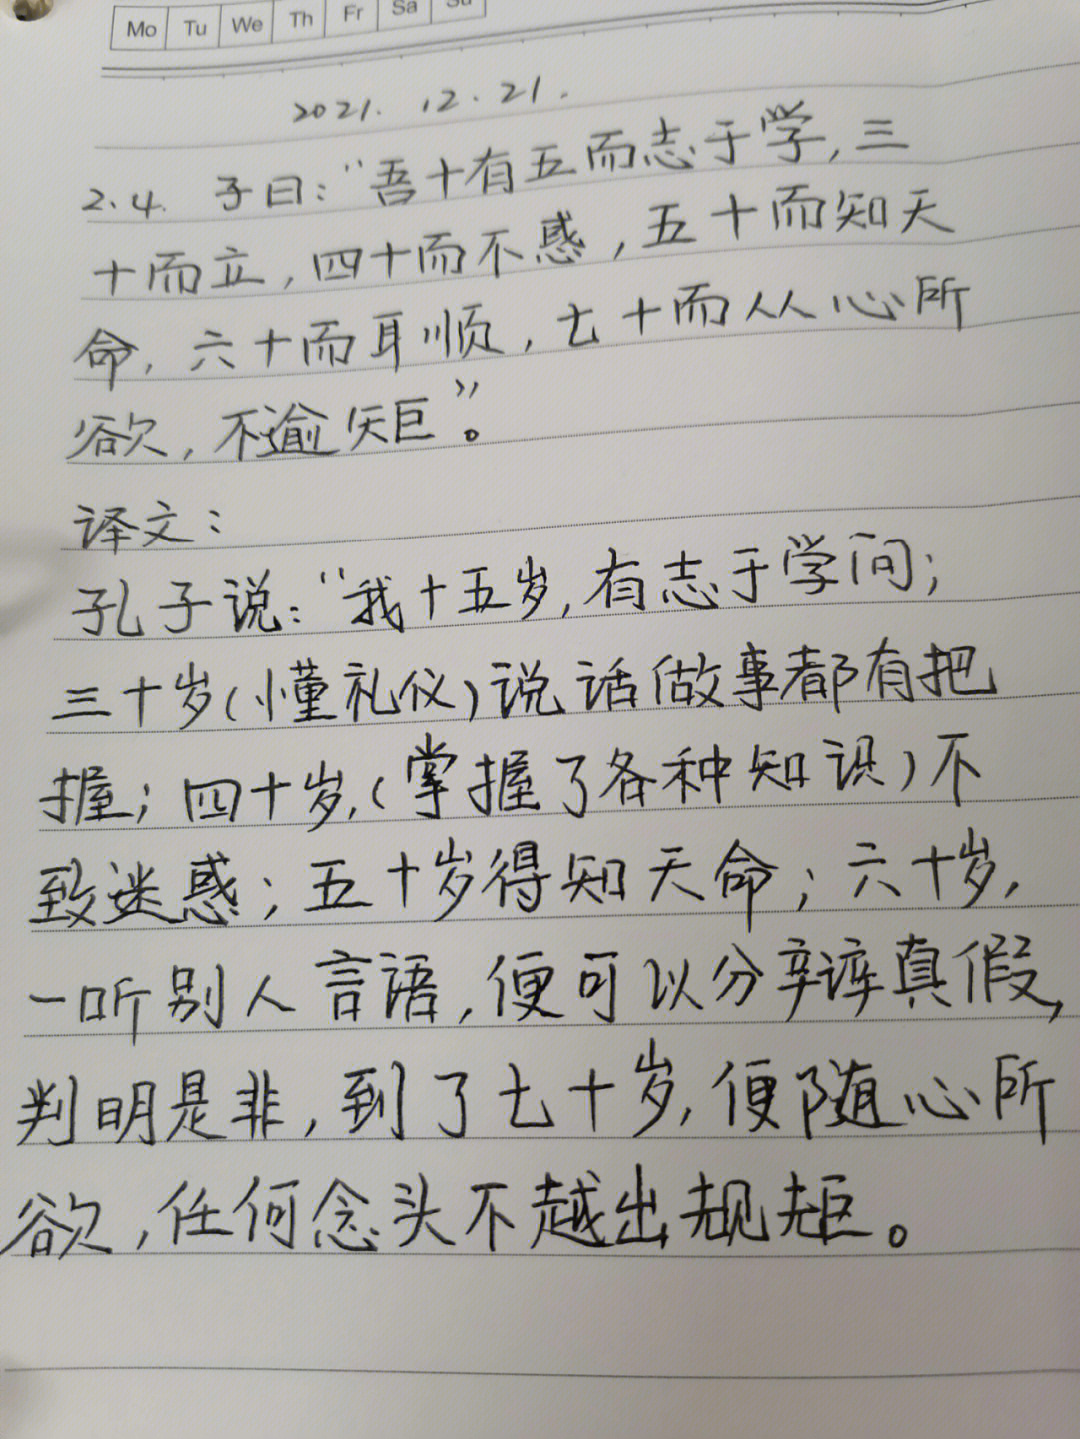 Mo Tu We Th Fr Sa Su
2021. 12. 21.
2.4. 子曰:“吾十有五而志于学,三
十而立,四十而不惑,五十而知天
命,六十而耳顺,七十而从心所
欲,不逾矩”。
译文:
孔子说:“我十五岁,有志于学问;
三十岁(懂礼仪)说话做事都有把
握;四十岁,(掌握了各种知识)不
致迷惑;五十岁得知天命;六十岁,
一听别人言语,便可以分辨真假,
判明是非,到了七十岁,便随心所
欲,任何念头不越出规矩。